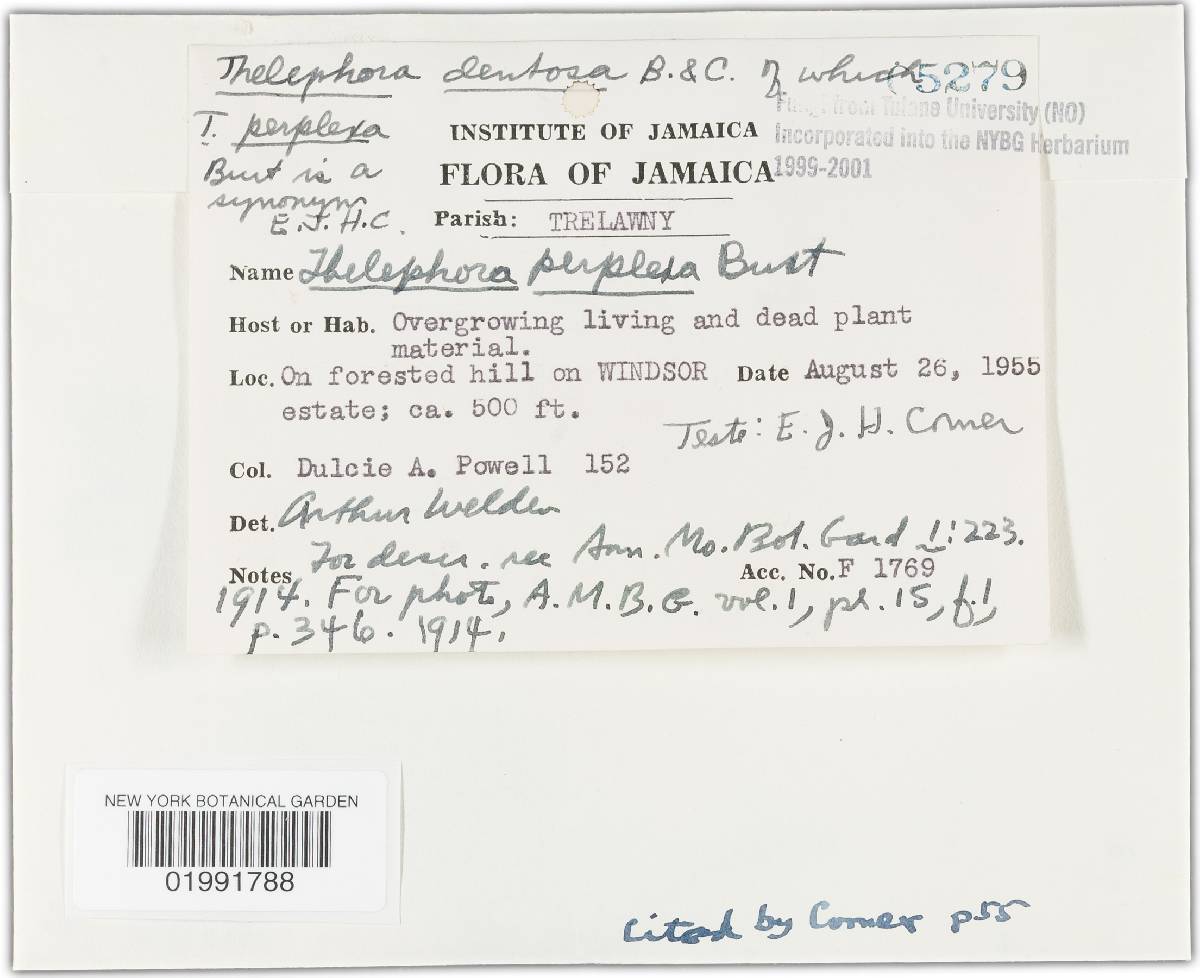 Thelephora dentosa B. & C. of which
5279
T. perplexa
Burt is a
synonym
E.J.H.C.
Fungi from Tulane University (NO)
Incorporated into the NYBG Herbarium
1999-2001
INSTITUTE OF JAMAICA
FLORA OF JAMAICA
Parish: TRELAWNY
Name Thelephora perplexa Burt
Host or Hab. Overgrowing living and dead plant
material.
Loc. On forested hill on WINDSOR Date August 26, 1955
estate; ca. 500 ft.
Teste: E. J. H. Corner
Col. Dulcie A. Powell 152
Det. Arthur Welden
For descr. see Ann. Mo. Bot. Gard 1:223.
Notes Acc. No. F 1769
1914. For photo, A.M.B.G. vol. 1, pl. 15, f.1,
p. 346. 1914.
NEW YORK BOTANICAL GARDEN
01991788
Cited by Corner p55